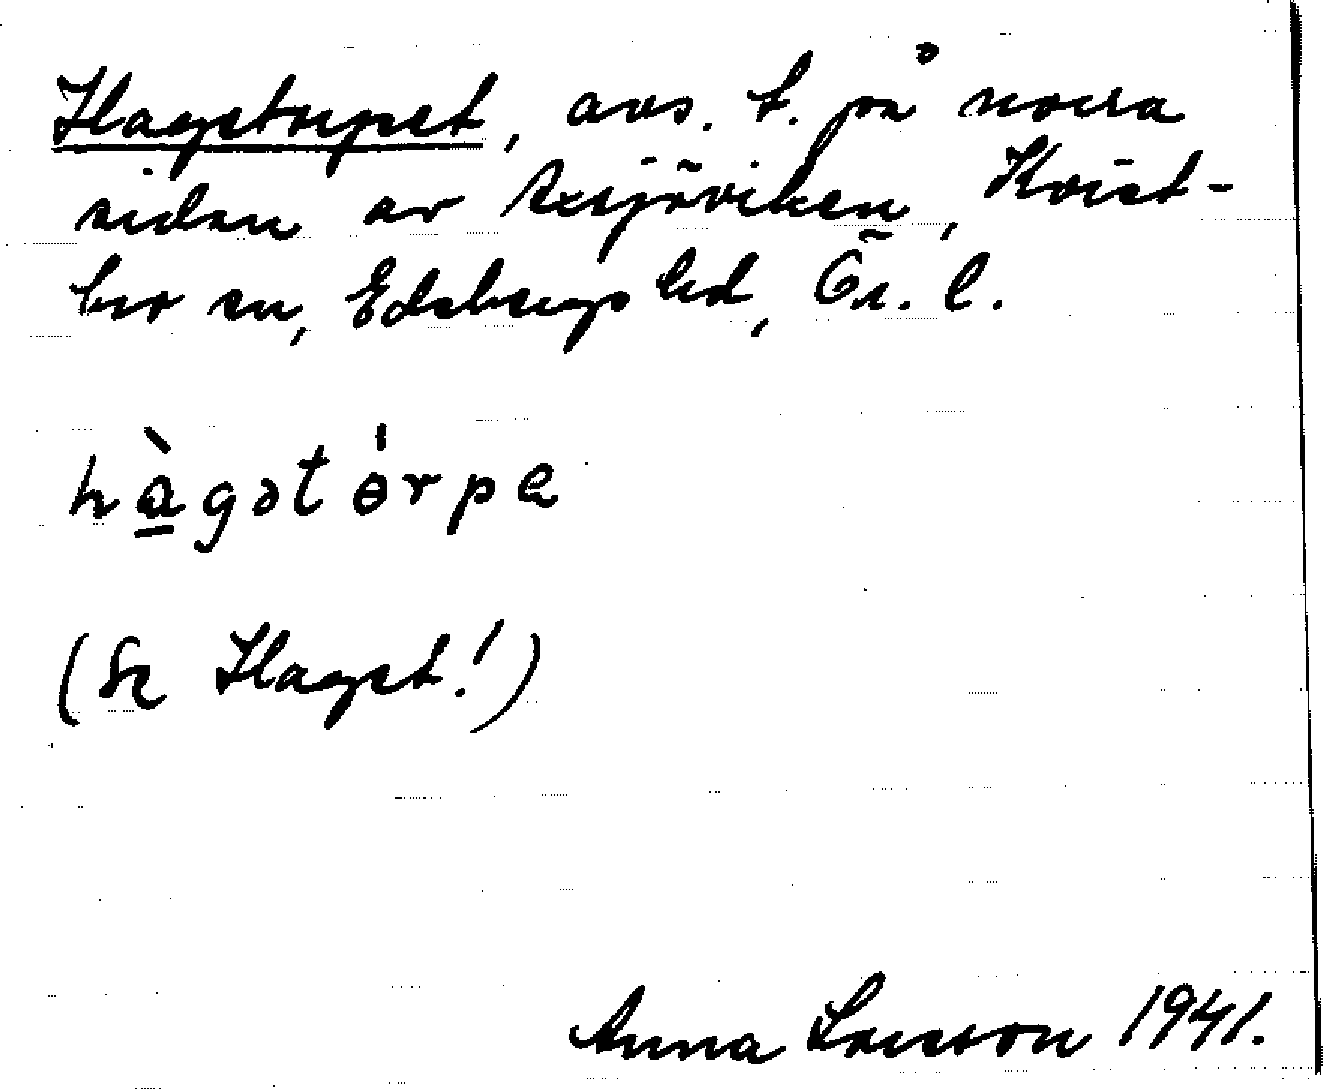 Hagetorpet, avs. t. på norra
sidan av Axsjöviken, Kvist-
bro sn, Edsbergs hd, Ör. l.
hàgət ɵ́rpe
(Se Haget!)
Anna Larsson 1941.